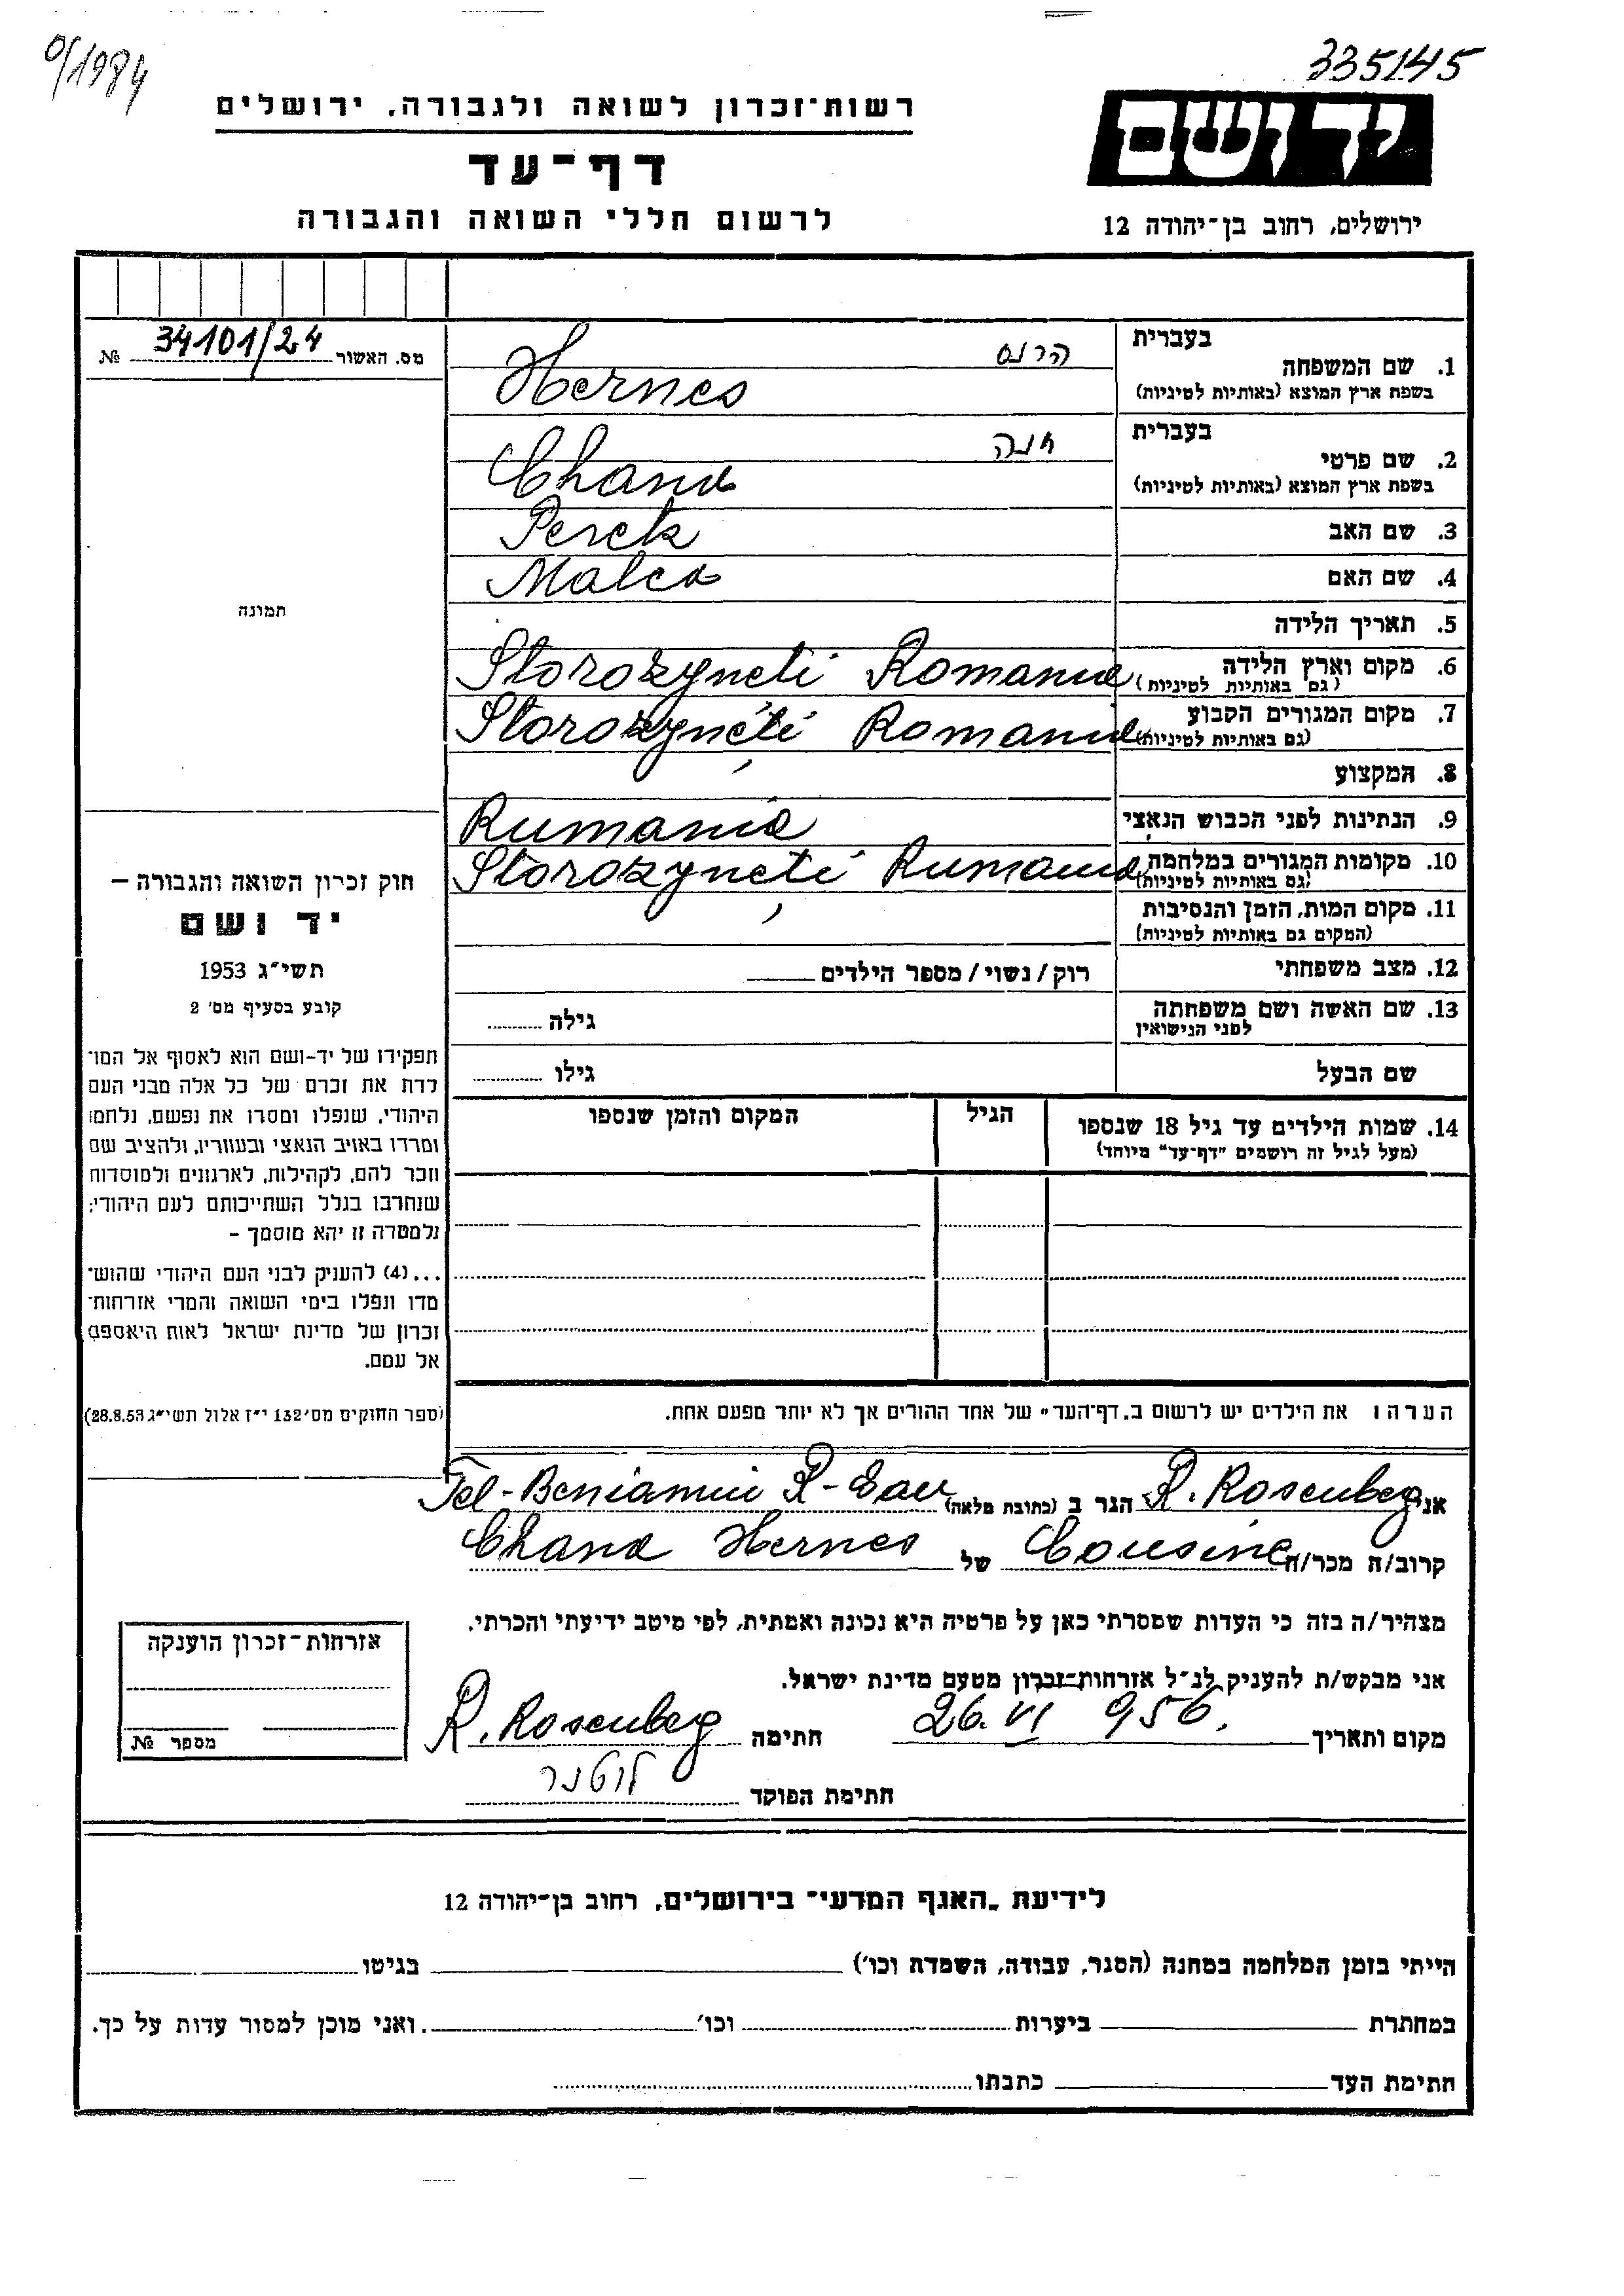 0/1984
335145
יד ושם
ירושלים, רחוב בן־יהודה 12
רשות־זכרון לשואה ולגבורה, ירושלים
דף־עד
לרשום חללי השואה והגבורה
מס. האשור 34101/24 №
תמונה
חוק זכרון השואה והגבורה –
יד ושם
תשי״ג 1953
קובע בסעיף מס׳ 2
תפקידו של יד-ושם הוא לאסוף אל המו־
לדת את זכרם של כל אלה מבני העם
היהודי, שנפלו ומסרו את נפשם, נלחמו
ומרדו באויב הנאצי ובעוזריו, ולהציב שם
וזכר להם, לקהילות, לארגונים ולמוסדות
שנחרבו בגלל השתייכותם לעם היהודי;
ולמטרה זו יהא מוסמך –
...(4) להעניק לבני העם היהודי שהוש־
מדו ונפלו בימי השואה והמרי אזרחות־
זכרון של מדינת ישראל לאות היאספם
אל עמם.
(ספר החוקים מס׳ 132 י״ז אלול תשי״ג 28.8.53)
בעברית
1. שם המשפחה הרנס
בשפת ארץ המוצא (באותיות לטיניות) Hernes
בעברית
2. שם פרטי חנה
בשפת ארץ המוצא (באותיות לטיניות) Chana
3. שם האב Peretz
4. שם האם Malca
5. תאריך הלידה
6. מקום וארץ הלידה Storozyneti Romania
(גם באותיות לטיניות)
7. מקום המגורים הקבוע Storozyneti Romania
(גם באותיות לטיניות)
8. המקצוע
9. הנתינות לפני הכבוש הנאצי Rumania
10. מקומות המגורים במלחמה Storozyneti Rumania
(גם באותיות לטיניות)
11. מקום המות, הזמן והנסיבות
(המקום גם באותיות לטיניות)
12. מצב משפחתי רוק/נשוי/מספר הילדים
13. שם האשה ושם משפחתה גילה
לפני הנישואין
שם הבעל גילו
14. שמות הילדים עד גיל 18 שנספו הגיל המקום והזמן שנספו
(מעל לגיל זה רושמים "דף־עד" מיוחד)
הערה: את הילדים יש לרשום ב„דף־העד" של אחד ההורים אך לא יותר מפעם אחת.
אני R. Rosenberg הגר ב (כתובת מלאה) Tel-Beniamin R-Gan
קרוב/ה מכר/ה Cousine של Chana Hernes
מצהיר/ה בזה כי העדות שמסרתי כאן על פרטיה היא נכונה ואמתית, לפי מיטב ידיעתי והכרתי.
אני מבקש/ת להעניק לנ״ל אזרחות־זכרון מטעם מדינת ישראל.
מקום ותאריך 26. VI 956. חתימה R. Rosenberg
חתימת הפוקד
אזרחות־זכרון הוענקה
מספר №
לידיעת „האגף המדעי" בירושלים, רחוב בן־יהודה 12
הייתי בזמן המלחמה במחנה (הסגר, עבודה, השמדה וכו׳) בגיטו
במחתרת ביערות וכו׳ . ואני מוכן למסור עדות על כך.
חתימת העד כתבתו